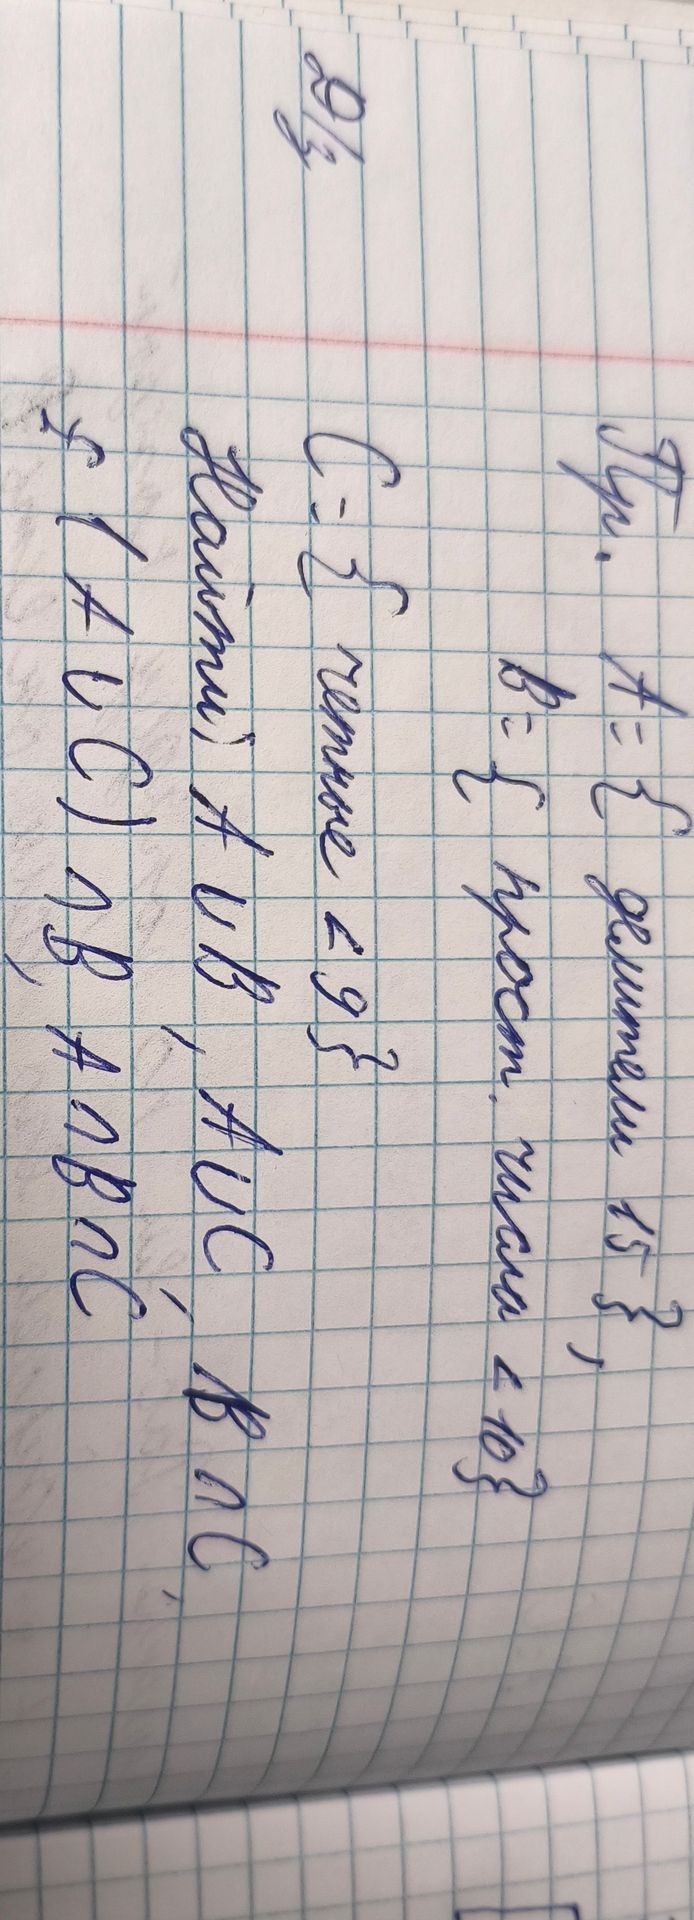 Пр. A = { делители 15 },
B = { прост. числа < 10}
Д/з C = { четные < 9}
Найти: A ∪ B, A ∪ C, B ∩ C,
(A ∪ C) ∩ B, A ∩ B ∩ C